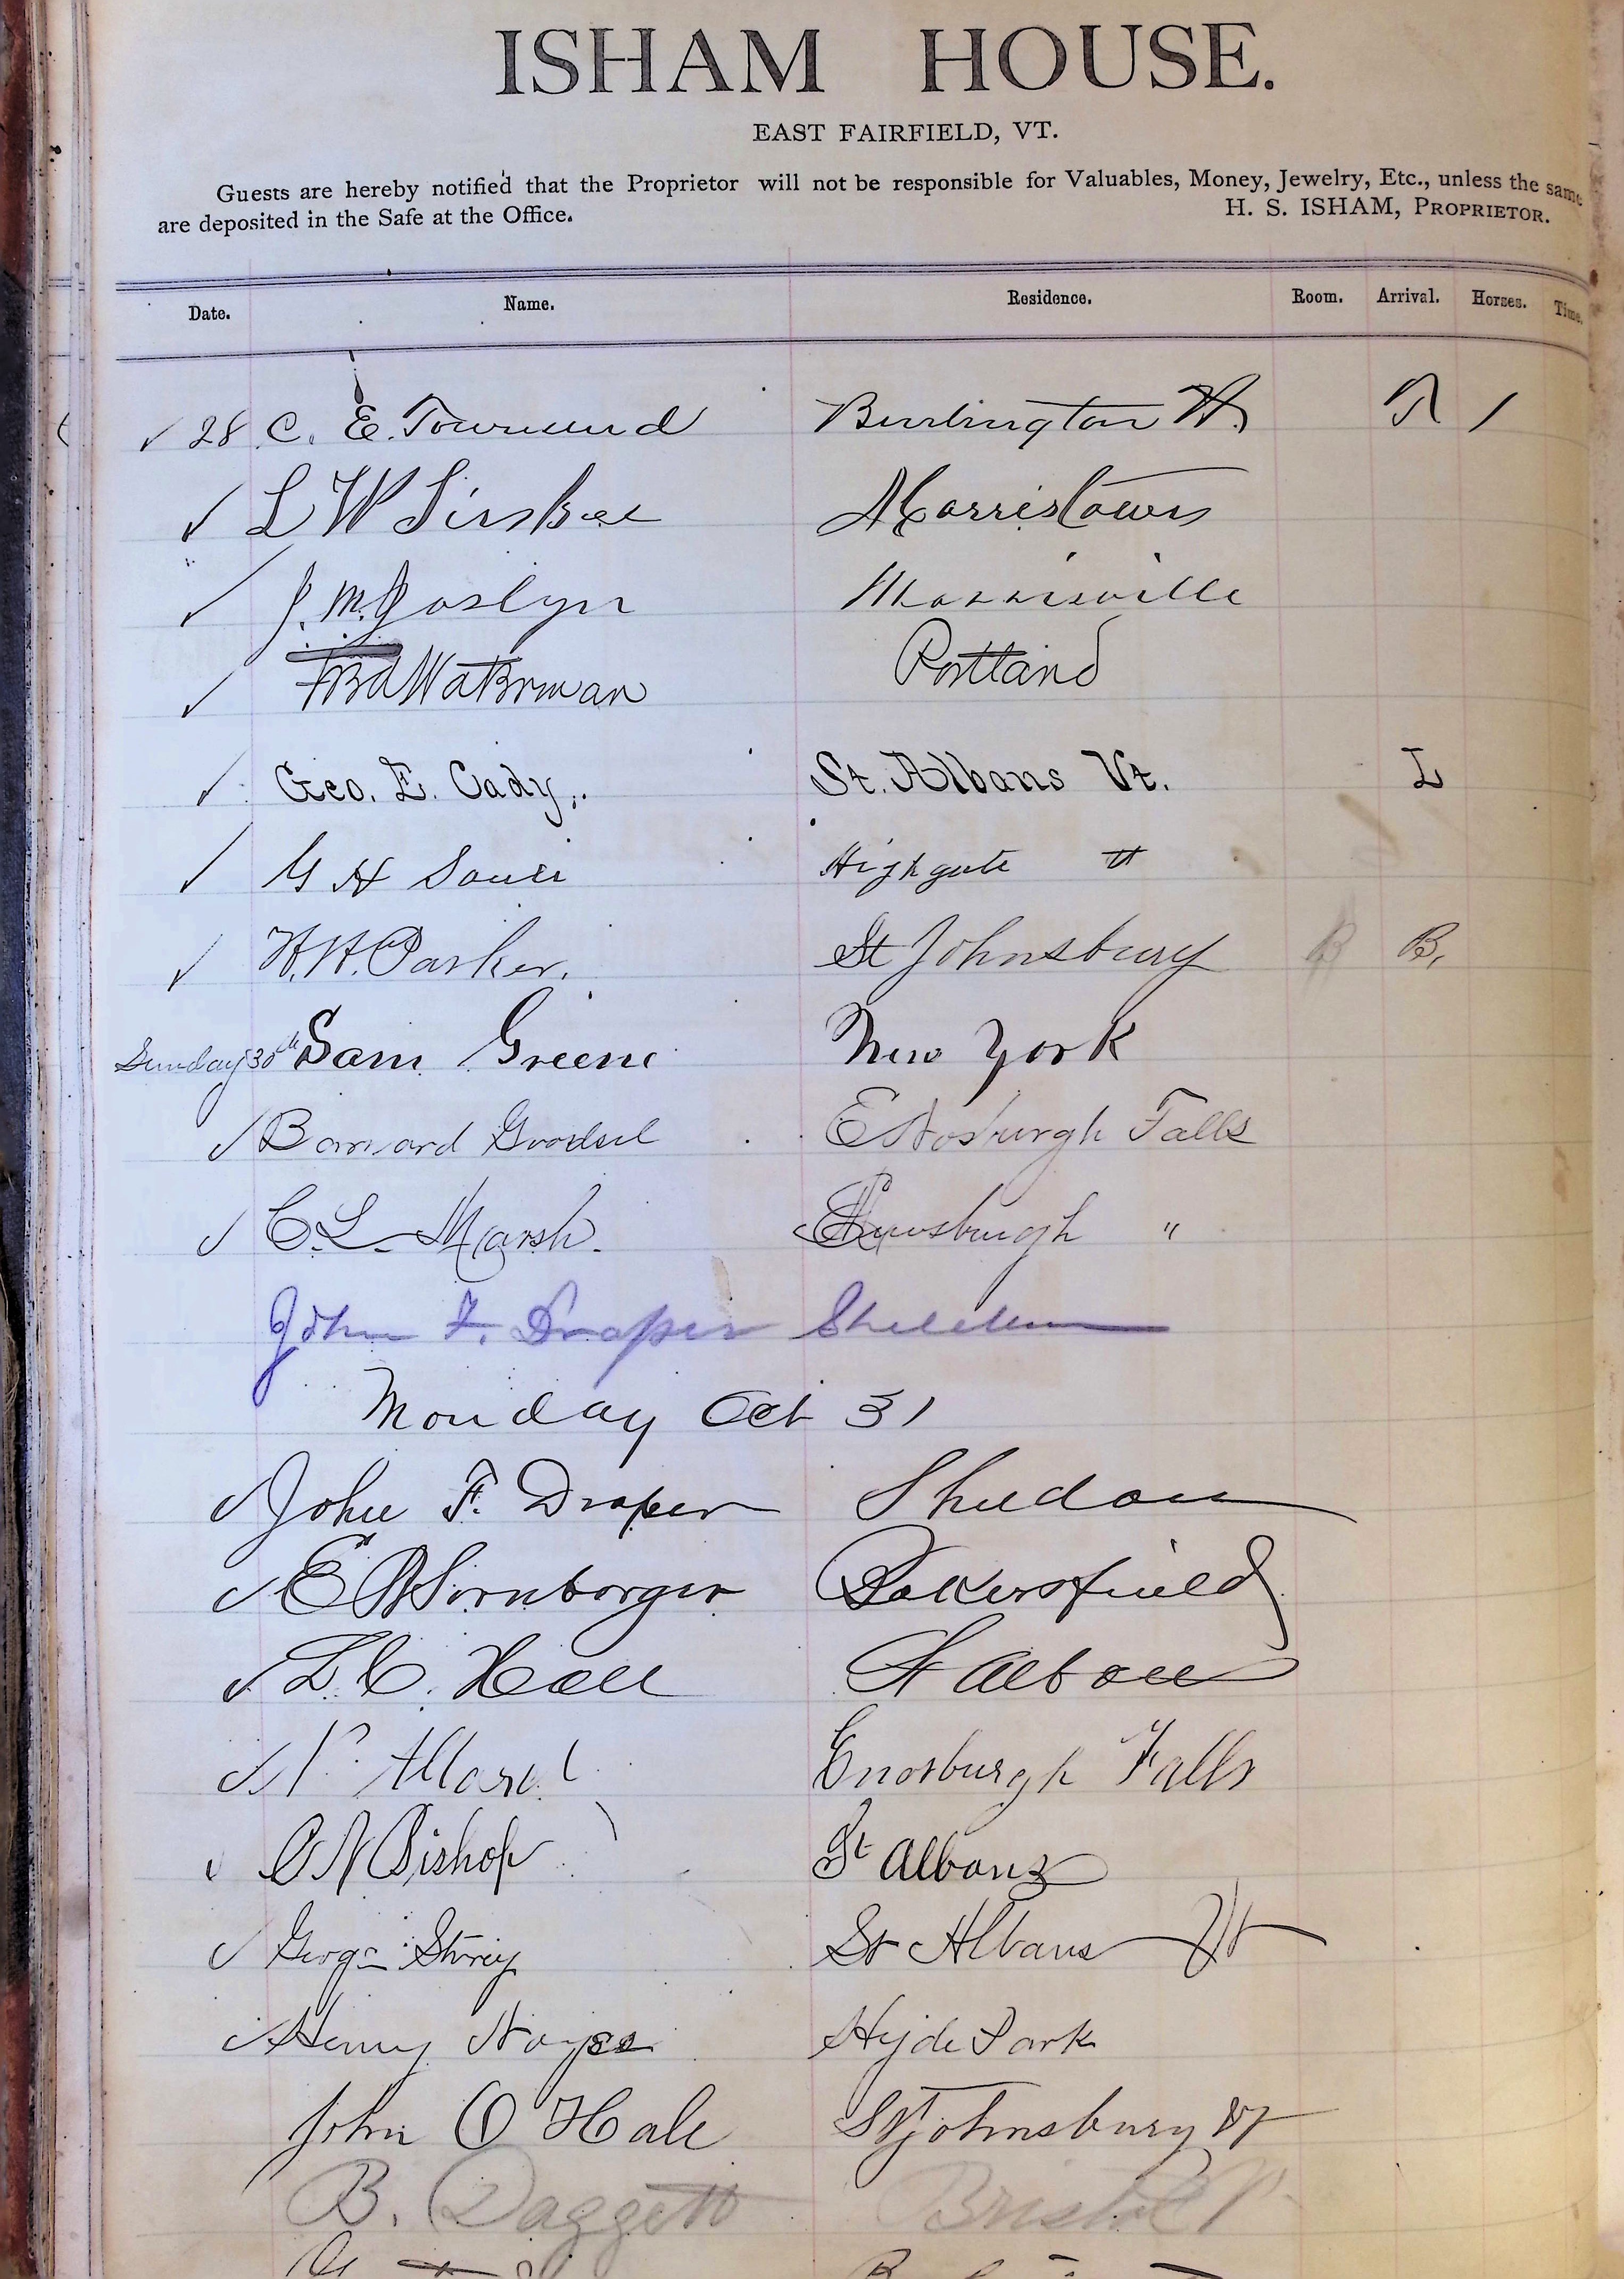 ISHAM HOUSE.
EAST FAIRFIELD, VT.
Guests are hereby notified that the Proprietor will not be responsible for Valuables, Money, Jewelry, Etc., unless the same
are deposited in the Safe at the Office.
H. S. ISHAM, PROPRIETOR.
Date. Name. Residence. Room. Arrival. Horses. Time.
28 C. E. Townsend Burlington Vt. /
L W Morristown
J. M. Joslyn Morrisville
Fred Waterman Portland
Geo. E. Cady. St. Albans Vt. L
G H Highgate Vt
H. H. Parker. St Johnsbury B B.
Sunday 30th Sam Greene New York
Barnard Goodsel Enosburgh Falls
C. L. Marsh. Enosburgh "
John F. Draper Sheldon
Monday Oct 31
John F. Draper Sheldon
E Bakersfield
L. C. Hall St Albans
Allard Enosburgh Falls
C N Bishop St Albans
George Story St Albans Vt
Henry Noyes Hyde Park
John O Hale St Johnsbury Vt
B. Daggett Bristol